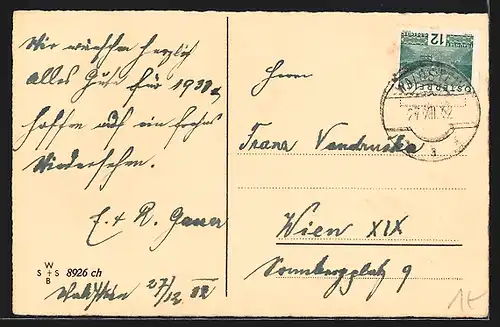 Wir wünschen herzlich
alles Gute für 1933 u.
hoffen auf ein frohes
Wiedersehen.
E. + R. Gauer
W
S + S
B
8926 ch
27/12 32
12
ÖSTERREICH
27.XII.32
Herrn
Franz Vondruska
Wien XIX
Sonnbergplatz 9
1€